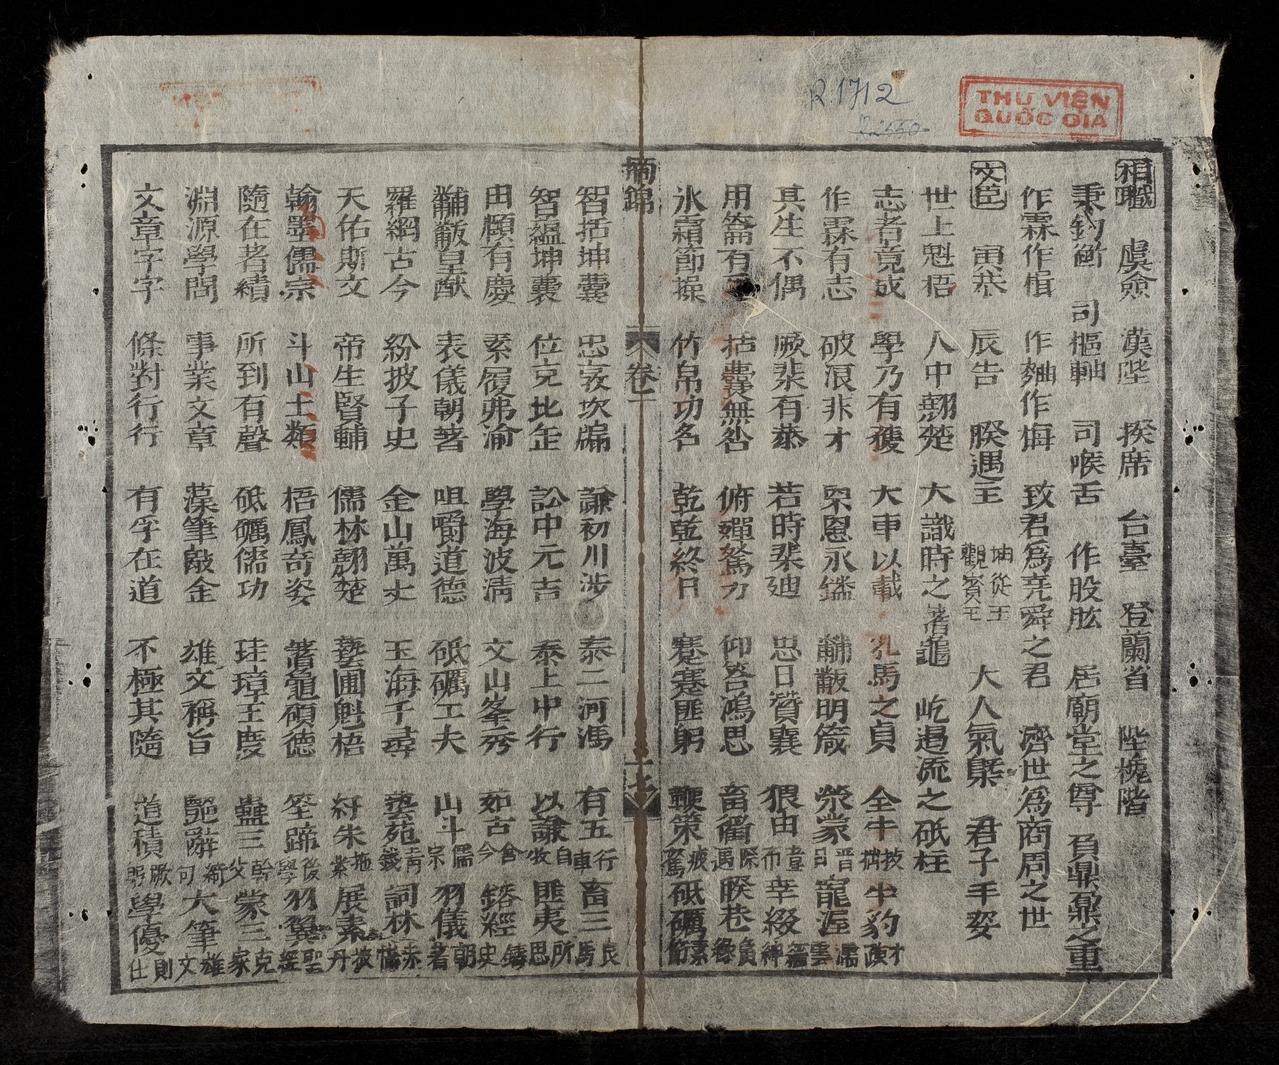 R.1712
THƯ VIỆN
QUỐC GIA
相職 虞僉 漢陛 揆席 台臺 登蘭省 陛槐階
秉鈞衡 司樞軸 司喉舌 作股肱 居廟堂之尊 負鼎鼐之重
作霖作楫 作麯作梅 致君爲堯舜之君 濟世爲商周之世
文臣 寅恭 辰告 睽遇王 坤從王 觀賓王 大人氣槩 君子手姿
世上魁梧 人中翹楚 大識時之蓍龜 屹過流之砥柱
志者竟成 學乃有獲 大車以載 乳馬之貞 全牛 半豹
作霖有志 破浪非才 渠恩永 黼黻明箴 滎蒙 寵渥
其生不偶 厥棐有恭 若時棐廸 思日贊襄 猥由 幸綴
用崙有 括囊無咎 俯殫駑力 仰答鴻恩 畜獨 睽巷
氷霜節操 竹帛功名 乾乾終日 蹇蹇匪躬 鞭策 疲駑 砥礪 素節
摘錦 卷一
智括坤囊 忠孜坎牖 謙初川涉 泰二河馮 有五車 畜三 良馬
智韞坤囊 位克比 訟中元吉 泰上中行 以謙自牧 匪夷所思
由頤有慶 素履弗渝 學海波清 文山峯秀 茹古含今 鎔經鑄史
黼黻皇猷 表儀朝著 咀嚼道德 砥礪工夫 山斗儒宗 羽儀朝著
羅網古今 紛披子史 金山萬丈 玉海千尋 藝苑 詞林
天佑斯文 帝生賢輔 儒林翹楚 藝圃魁梧 紆朱拖紫 展素披丹
翰墨儒宗 斗山士類 梧鳳奇姿 蓍龜碩德 筌蹄後學 羽翼聖經
隨在著績 所到有聲 砥礪儒功 珪璋王度 蠱三幹父 蒙三克家
淵源學問 事業文章 藻筆敲金 雄文稱旨 艷辭 大筆雄文
文章字字 條對行行 有孚在道 不極其隨 道積厥躬 學優則仕